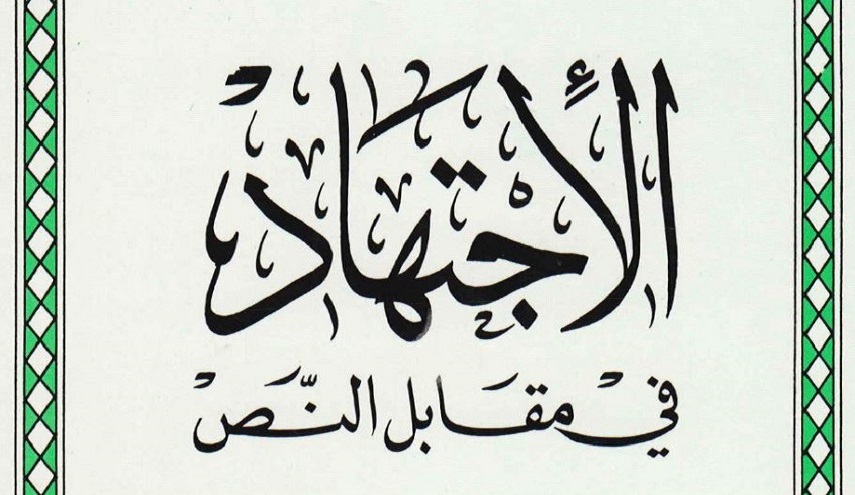 الأِجْتِهَادْ
في مقَابل النَّصْ